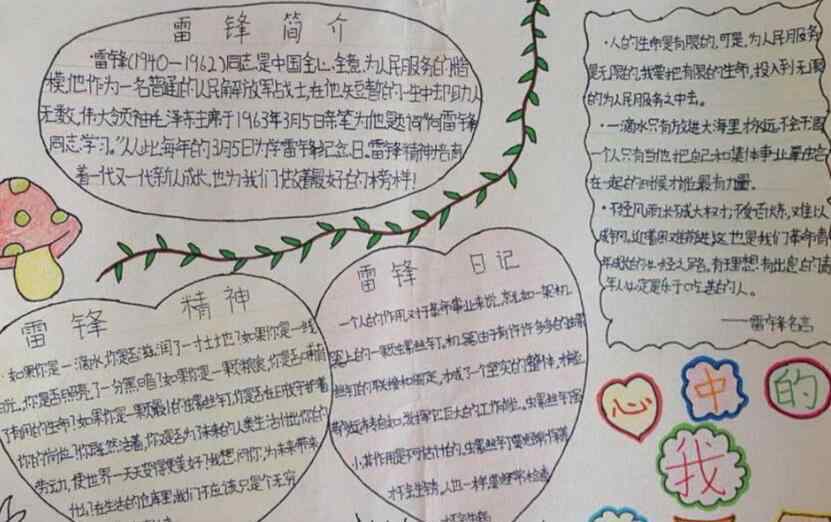 雷锋简介
·雷锋(1940—1962)同志,是中国全心全意,为人民服务的楷
模,他作为一名普通的人民解放军战士,在他短暂的一生中却助人
无数,伟大领袖毛泽东主席于1963年3月5日亲笔为他题词"向雷锋
同志学习。"从此每年的3月5日为学雷锋纪念日。雷锋精神培育
着一代又一代新人成长,也为我们做着最好的榜样!
·人的生命是有限的,可是,为人民服务
是无限的,我要把有限的生命,投入到无限
的为人民服务之中去。
·一滴水只有放进大海里才永远不会干涸
一个人只有当他把自己和集体事业融合
在一起的时候才能最有力量。
·不经风雨,长不成大树;不受百炼,难以
成钢。迎着困难前进,这也是我们革命青
年成长的必经之路。有理想有出息的青
年人必定是乐于吃苦的人。
——雷锋名言
雷锋精神
·如果你是一滴水,你是否滋润了一寸土地?如果你是一线
阳光,你是否照亮了一分黑暗?如果你是一颗粮食,你是否哺育
了有用的生命?如果你是一颗最小的螺丝钉,你是否永远守护着
你的岗位?你既然活着,你是否为未来的人类生活付出你的
劳动,使世界一天天变得更美好?我想问你,为未来带来
在生活的仓库里,我们不应该只是个无穷
雷锋日记
一个人的作用,对于革命事业来说,就如一架机
器上的一颗螺丝钉。机器由于有许许多多的螺丝
钉的联接和固定,才成了一个坚实的整体,才能
运转自如,发挥它巨大的工作能。螺丝钉虽
小,其作用是不可估计的。螺丝钉要经常保养
才不会生锈。人也一样,要经常检查
才不会生锈
心中的
我